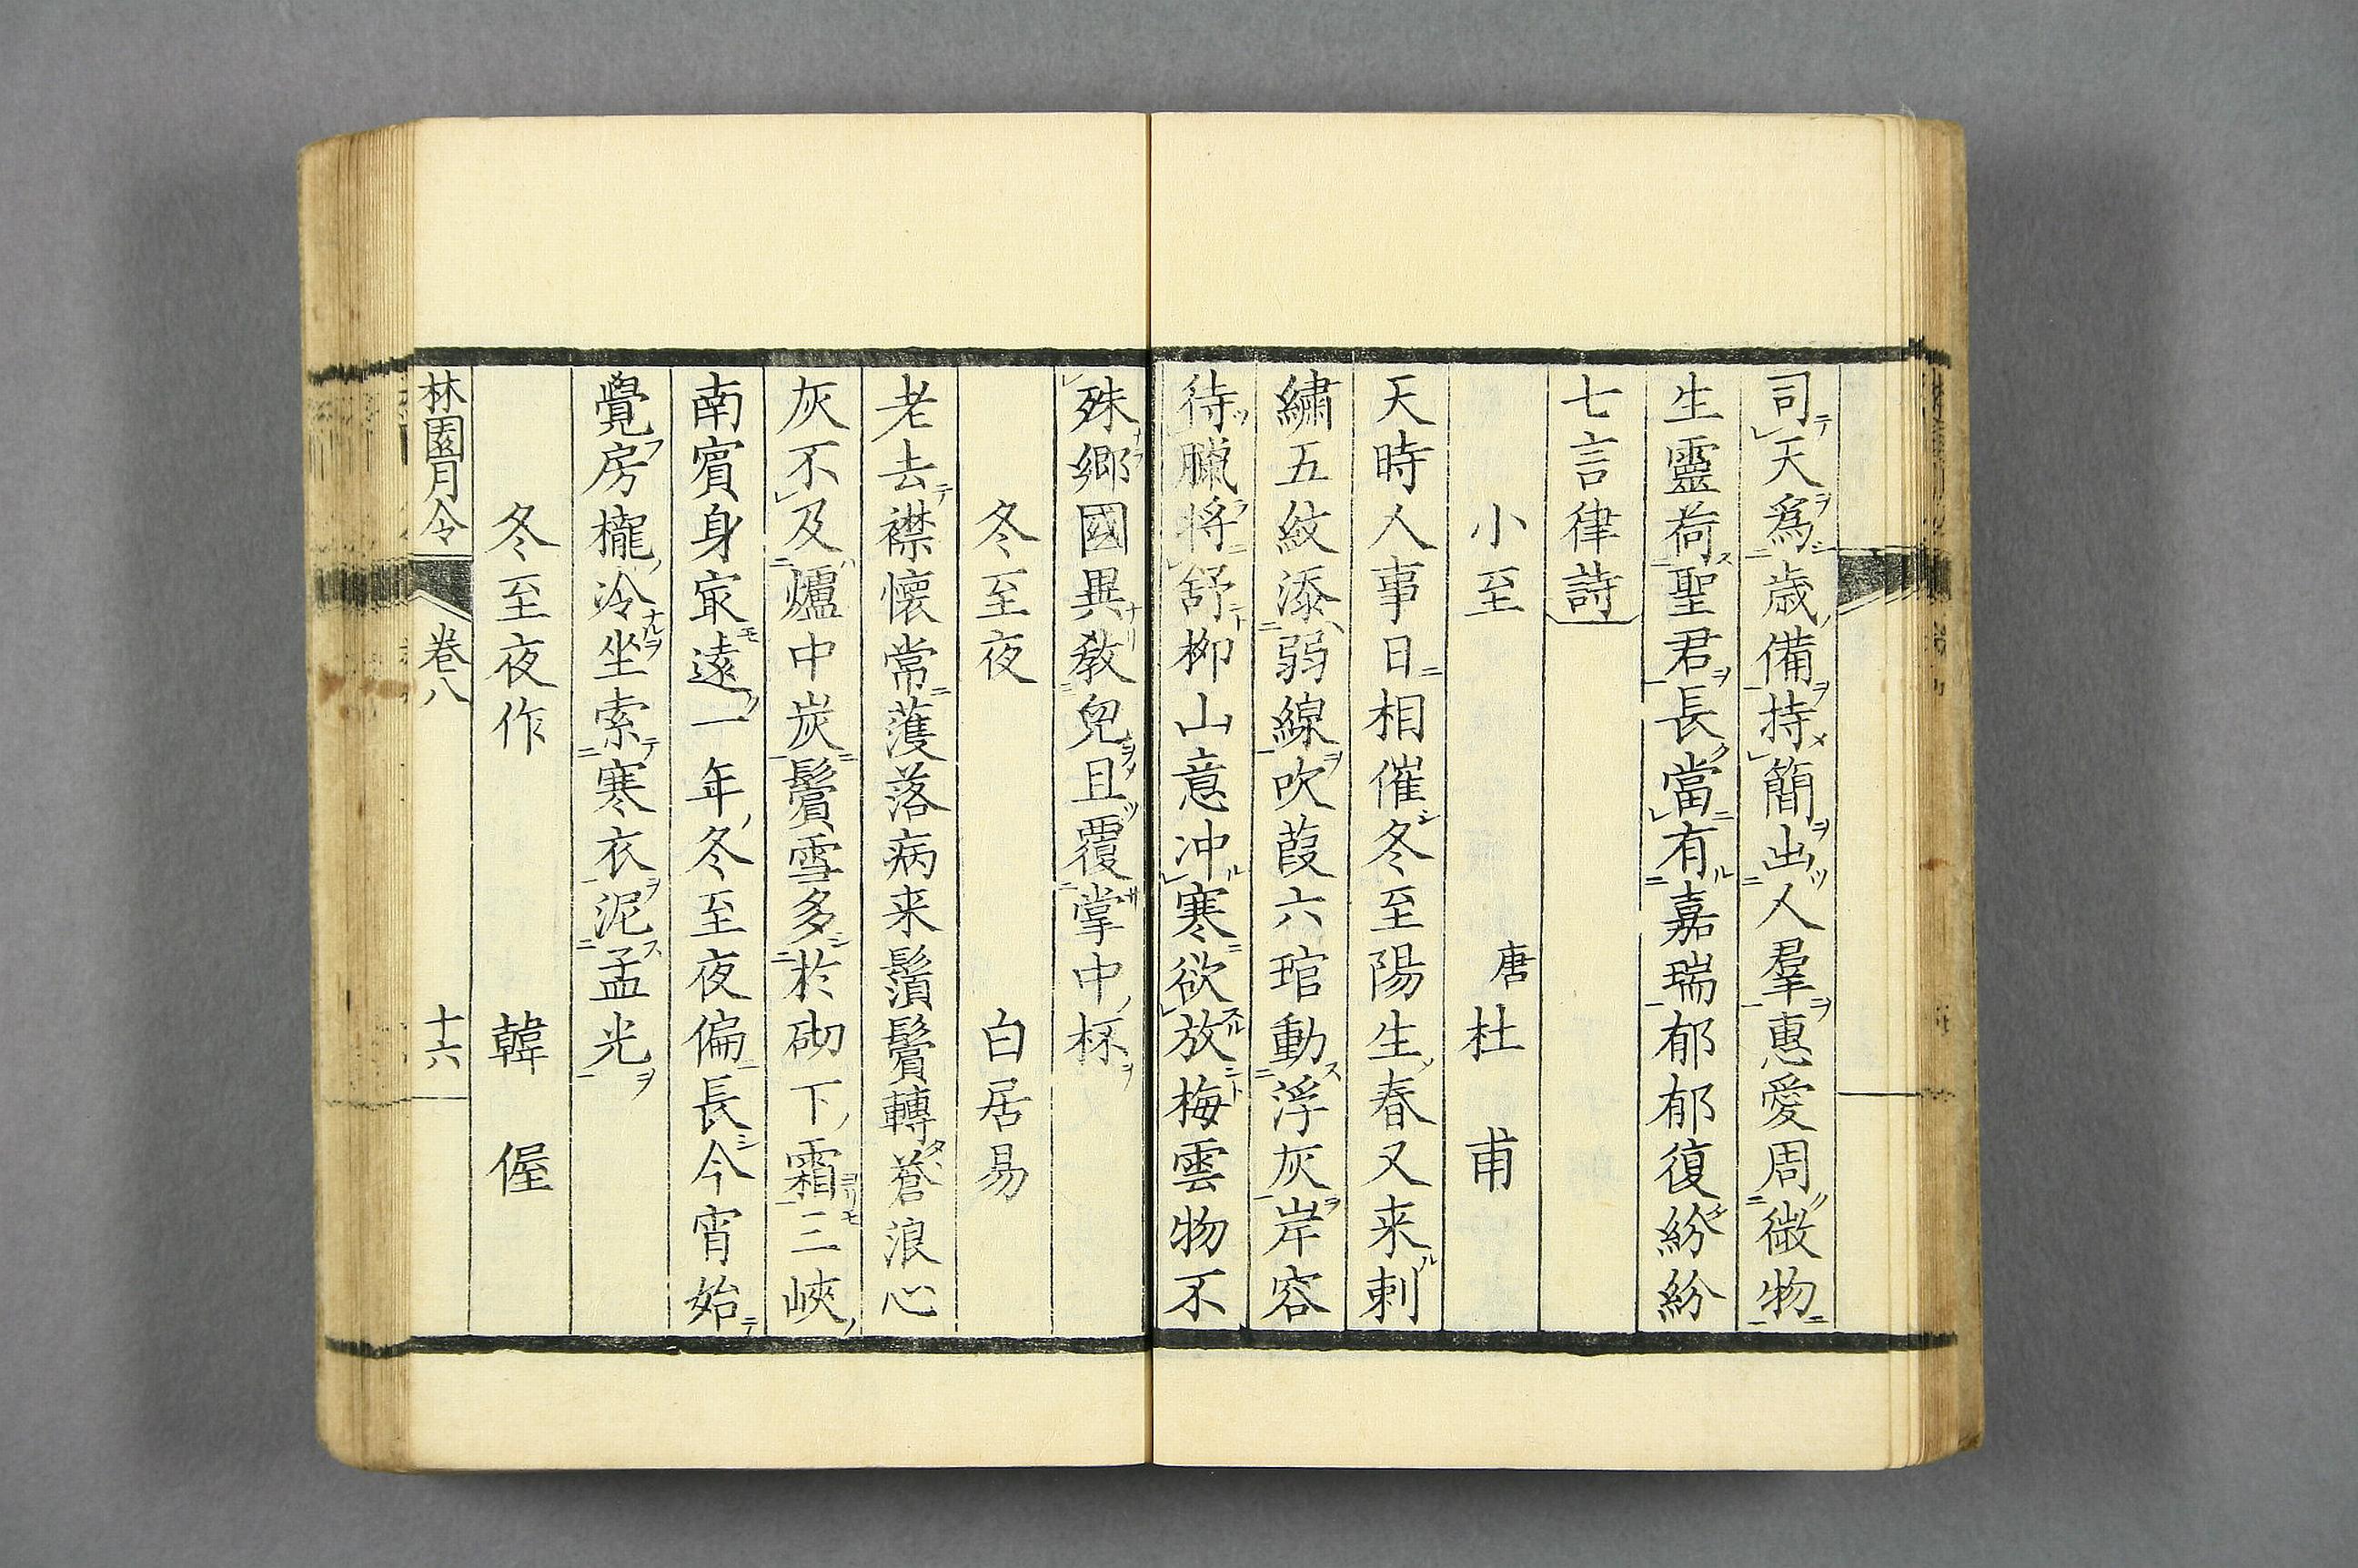 司天爲歳備持簡出人羣惠愛周微物
生靈荷聖君長當有嘉瑞郁郁復紛紛
七言律詩
小至　唐杜甫
天時人事日相催冬至陽生春又来刺
繡五紋添弱線吹葭六琯動浮灰岸容
待臘将舒柳山意冲寒欲放梅雲物不
殊鄉國異教兒且覆掌中杯
冬至夜　白居易
老去襟懷常濩落病来鬚鬢轉蒼浪心
灰不及爐中炭鬢雪多於砌下霜三峽
南賓身㝡遠一年冬至夜偏長今宵始
覺房櫳冷坐索寒衣泥孟光
冬至夜作　韓偓
林園月令　卷八　十六